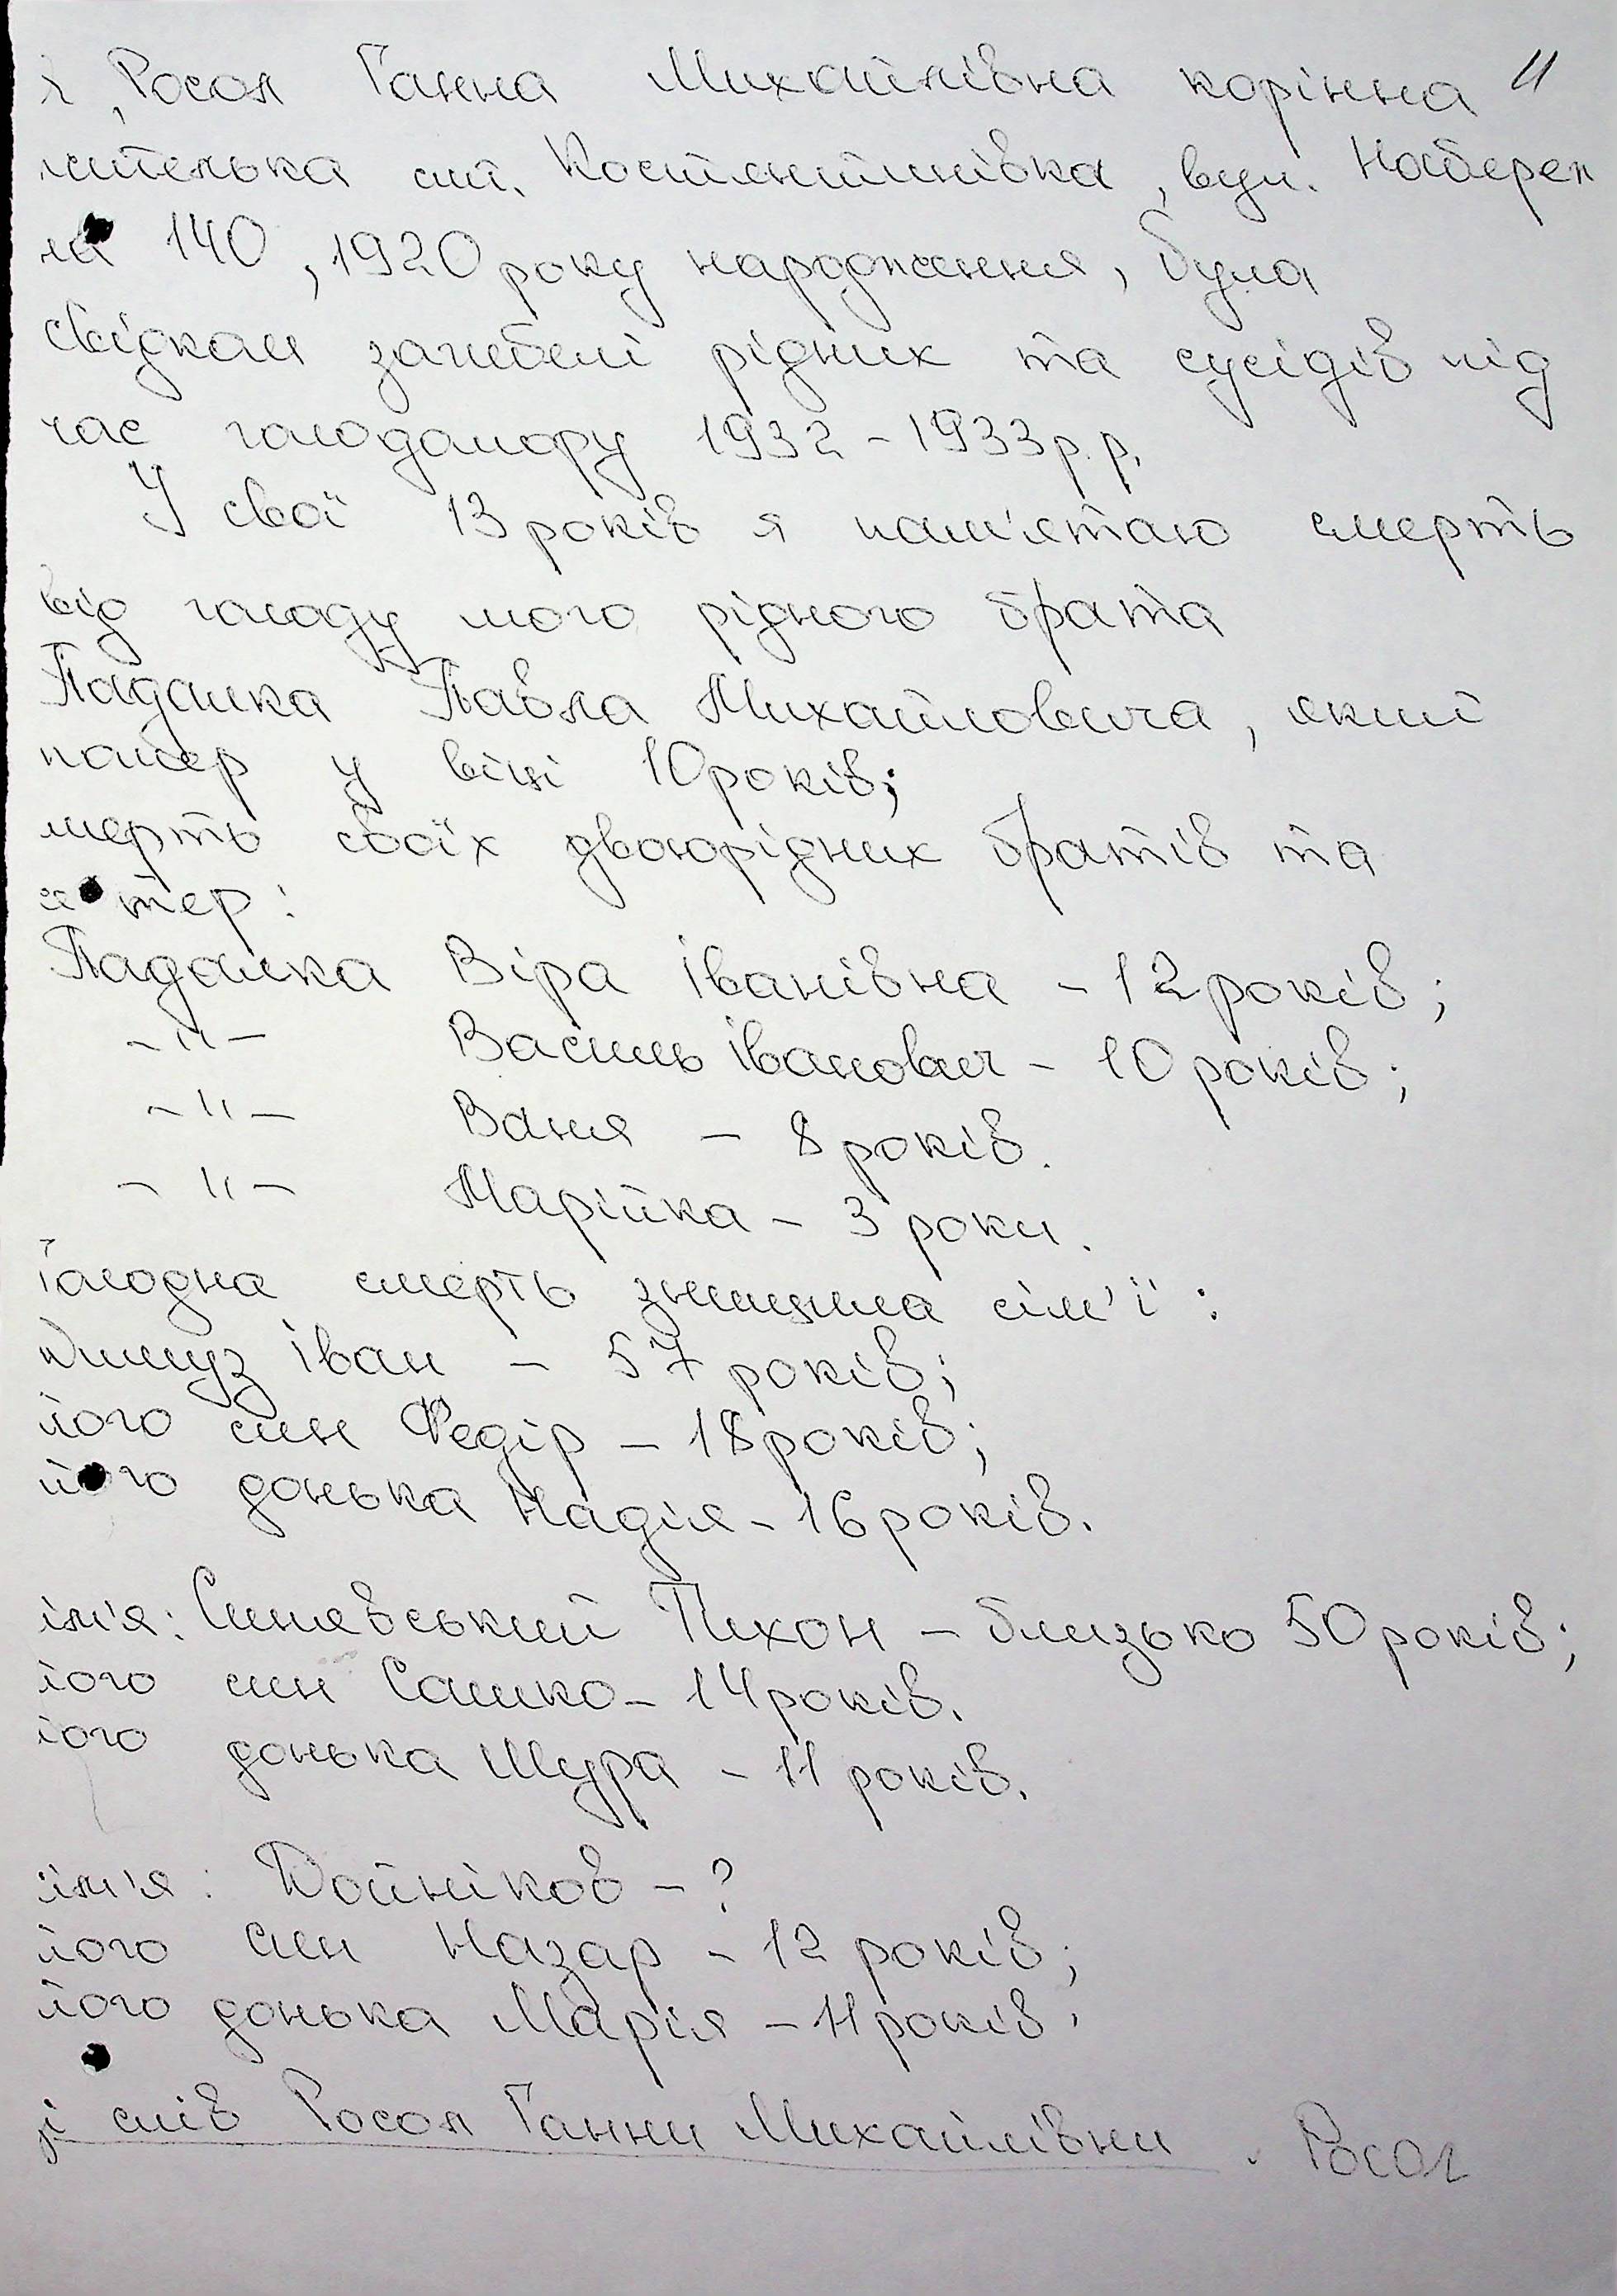 Я, Росол Ганна Михайлівна корінна 11
жителька смт. Костянтинівка, вул. Набереж
на 140, 1920 року народження, була
свідком загибелі рідних та сусідів під
час голодомору 1932-1933 р.р.
У свої 13 років я пам'ятаю смерть
від голоду мого рідного брата
Падалка Павла Михайловича, який
помер у віці 10 років;
смерть своїх двоюрідних братів та
сестер:
Падалка Віра Іванівна - 12 років;
-"- Василь Іванович - 10 років;
-"- Ваня - 8 років.
-"- Марійка - 3 роки.
Голодна смерть знищила сім'ї:
Іван - 57 років;
його син Федір - 18 років;
його донька Надія - 16 років.
сім'я: Синявський Тихон - близько 50 років;
його син Сашко - 14 років.
його донька Шура - 11 років.
сім'я: Дойніков - ?
його син Назар - 12 років;
його донька Марія - 11 років.
зі слів Росол Ганни Михайлівни. Росол